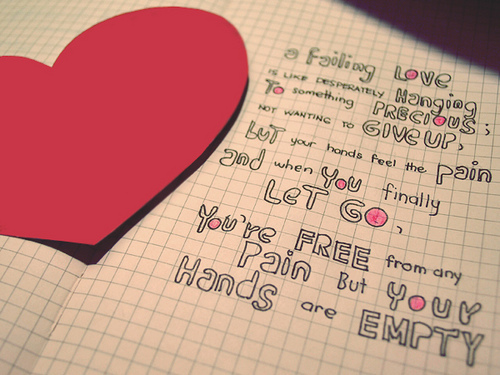 a failing LOVE
IS LIKE DESPERATELY Hanging
To something PRECIOUS;
NOT WANTING TO GIVE UP,
but your hands feel the pain
and when You finally
LeT GO,
You're FREE from any
Pain But your
Hands are EMPTY